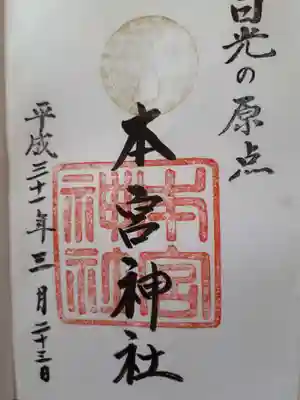 日光の原点
本宮神社
本宮
神社
平成三十一年三月二十三日